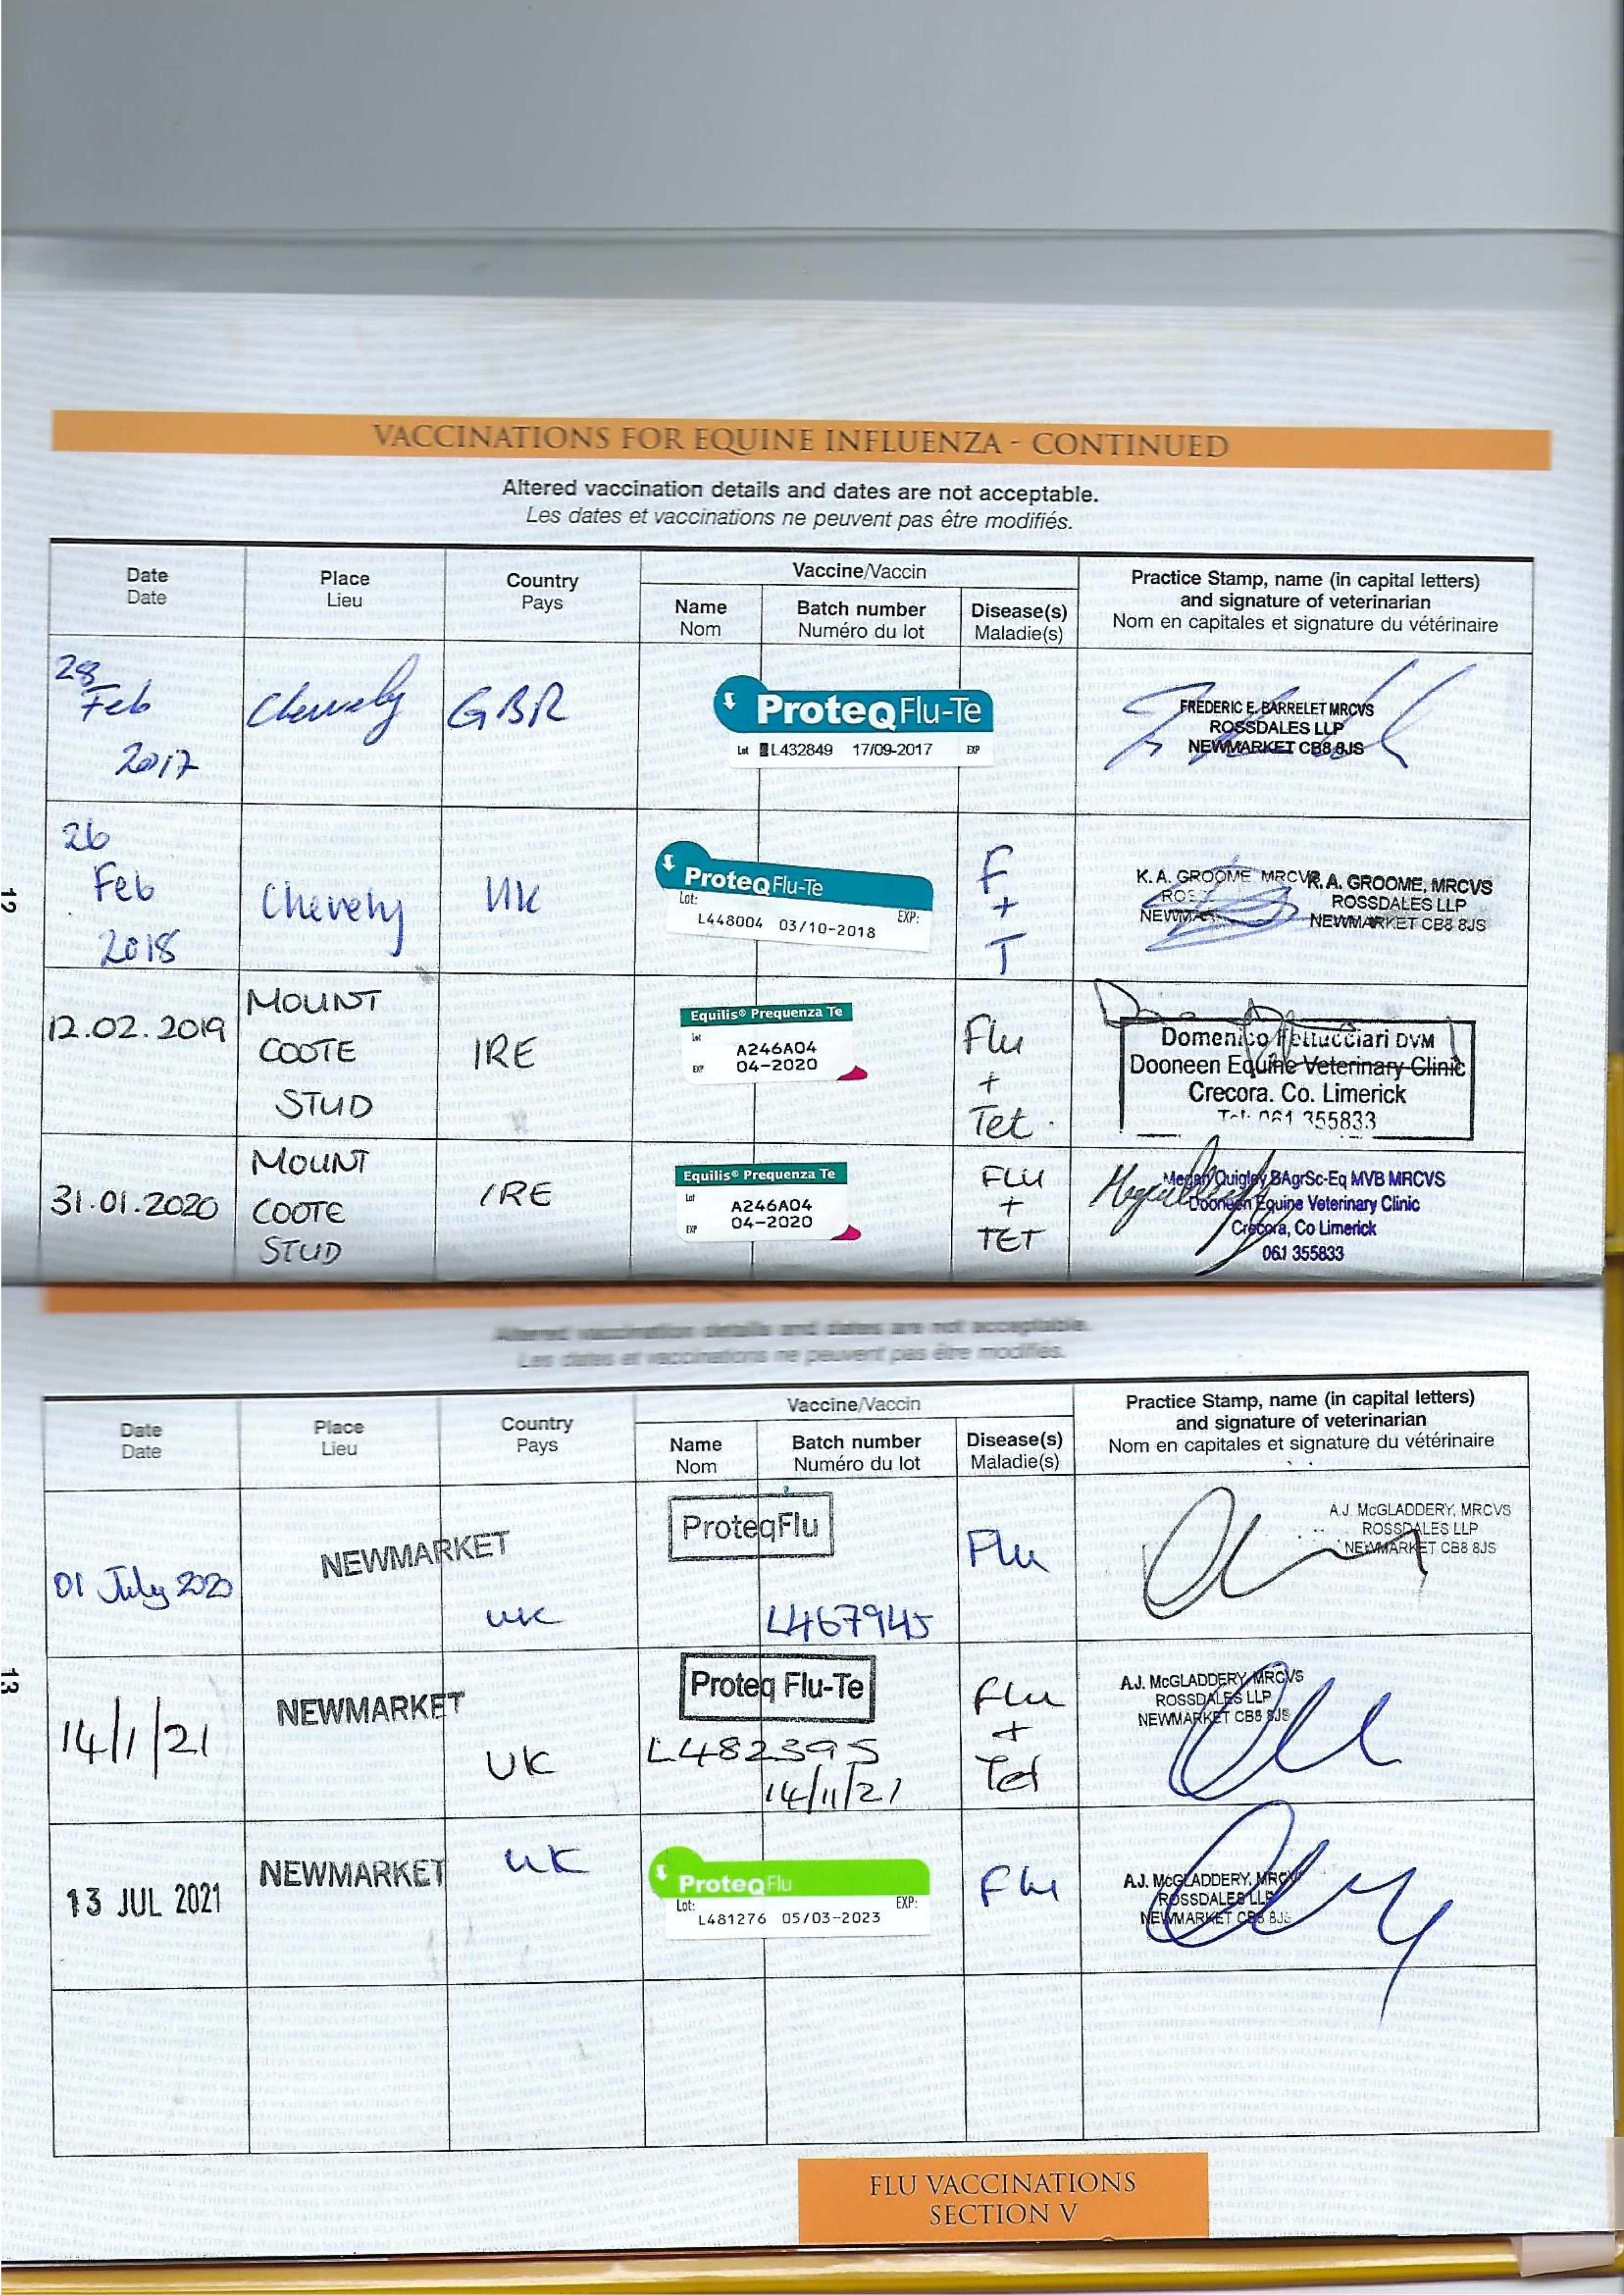 VACCINATIONS FOR EQUINE INFLUENZA - CONTINUED
Altered vaccination details and dates are not acceptable.
Les dates et vaccinations ne peuvent pas être modifiés.
Date
Date
Place
Lieu
Country
Pays
Vaccine/Vaccin
Name
Nom
Batch number
Numéro du lot
Disease(s)
Maladie(s)
Practice Stamp, name (in capital letters)
and signature of veterinarian
Nom en capitales et signature du vétérinaire
28
Feb
2017
Chevely
GBR
ProteqFlu-Te
Lot L432849 17/09-2017 EXP
FREDERIC E. BARRELET MRCVS
ROSSDALES LLP
NEWMARKET CB8 8JS
12
26
Feb
2018
Chevely
UK
ProteqFlu-Te
Lot: EXP:
L448004 03/10-2018
F
+
T
K.A. GROOME MRCVS
K.A. GROOME, MRCVS
ROSSDALES LLP
NEWMARKET CB8 8JS
12.02.2019
MOUNT
COOTE
STUD
IRE
Equilis® Prequenza Te
Lot A246A04
EXP 04-2020
Flu
+
Tet.
Domenico Pellucciari DVM
Dooneen Equine Veterinary Clinic
Crecora. Co. Limerick
Tel: 061 355833
31.01.2020
MOUNT
COOTE
STUD
IRE
Equilis® Prequenza Te
Lot A246A04
EXP 04-2020
FLU
+
TET
Megan Quigley BAgrSc-Eq MVB MRCVS
Dooneen Equine Veterinary Clinic
Crecora, Co Limerick
061 355833
Altered vaccination details and dates are not acceptable.
Les dates et vaccinations ne peuvent pas être modifiés.
Date
Date
Place
Lieu
Country
Pays
Vaccine/Vaccin
Name
Nom
Batch number
Numéro du lot
Disease(s)
Maladie(s)
Practice Stamp, name (in capital letters)
and signature of veterinarian
Nom en capitales et signature du vétérinaire
01 July 2020
NEWMARKET
UK
ProteqFlu
L467945
Flu
A.J. McGLADDERY, MRCVS
ROSSDALES LLP
NEWMARKET CB8 8JS
13
14/1/21
NEWMARKET
UK
Proteq Flu-Te
L482395
14/11/21
Flu
+
Tet
A.J. McGLADDERY, MRCVS
ROSSDALES LLP
NEWMARKET CB8 8JS
13 JUL 2021
NEWMARKET
UK
ProteqFlu
Lot: EXP:
L481276 05/03-2023
Flu
A.J. McGLADDERY, MRCVS
ROSSDALES LLP
NEWMARKET CB8 8JS
FLU VACCINATIONS
SECTION V